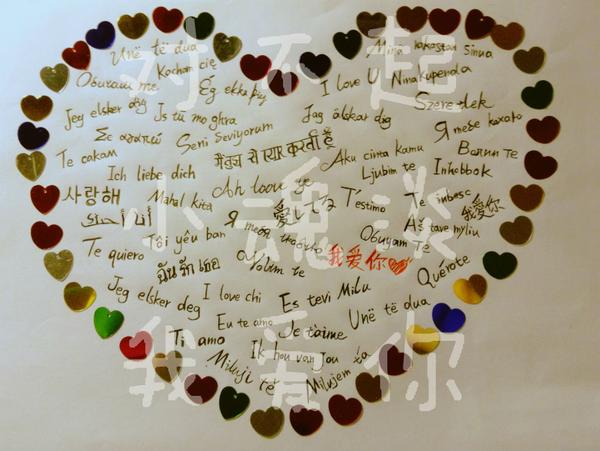 对不起
小魂淡
我爱你
Unë të dua
Minä rakastan Sinua
Kochan cię
Oburaw me
Ég elska þig
I love U
Nina Kupenda
Jeg elsker dig
Is tú mo ghrá
Jag älskar dig
Szeretlek
Σε αγαπώ
Seni Seviyorum
Я тебе кохаю
Te
मैं तुझ से प्यार करती हूँ
Aku cinta kamu
Волим те
Ich liebe dich
Ljubim te
Inhobbok
사랑해
Mahal kita
Ah loove ye
T'estimo
Te iubesc
我爱你
愛してる
Aš tave myliu
Te quiero
Tôi yêu bạn
Я тебя люблю
Obuyam Te
ฉันรัก เธอ
Volim te
我爱你
Jeg elsker deg
I love chi
Es tevi Milu
Quérote
Eu te amo
Je t'aime
Unë të dua
Ti amo
Ik hou van Jou
Miluji tě
Milujem ťa